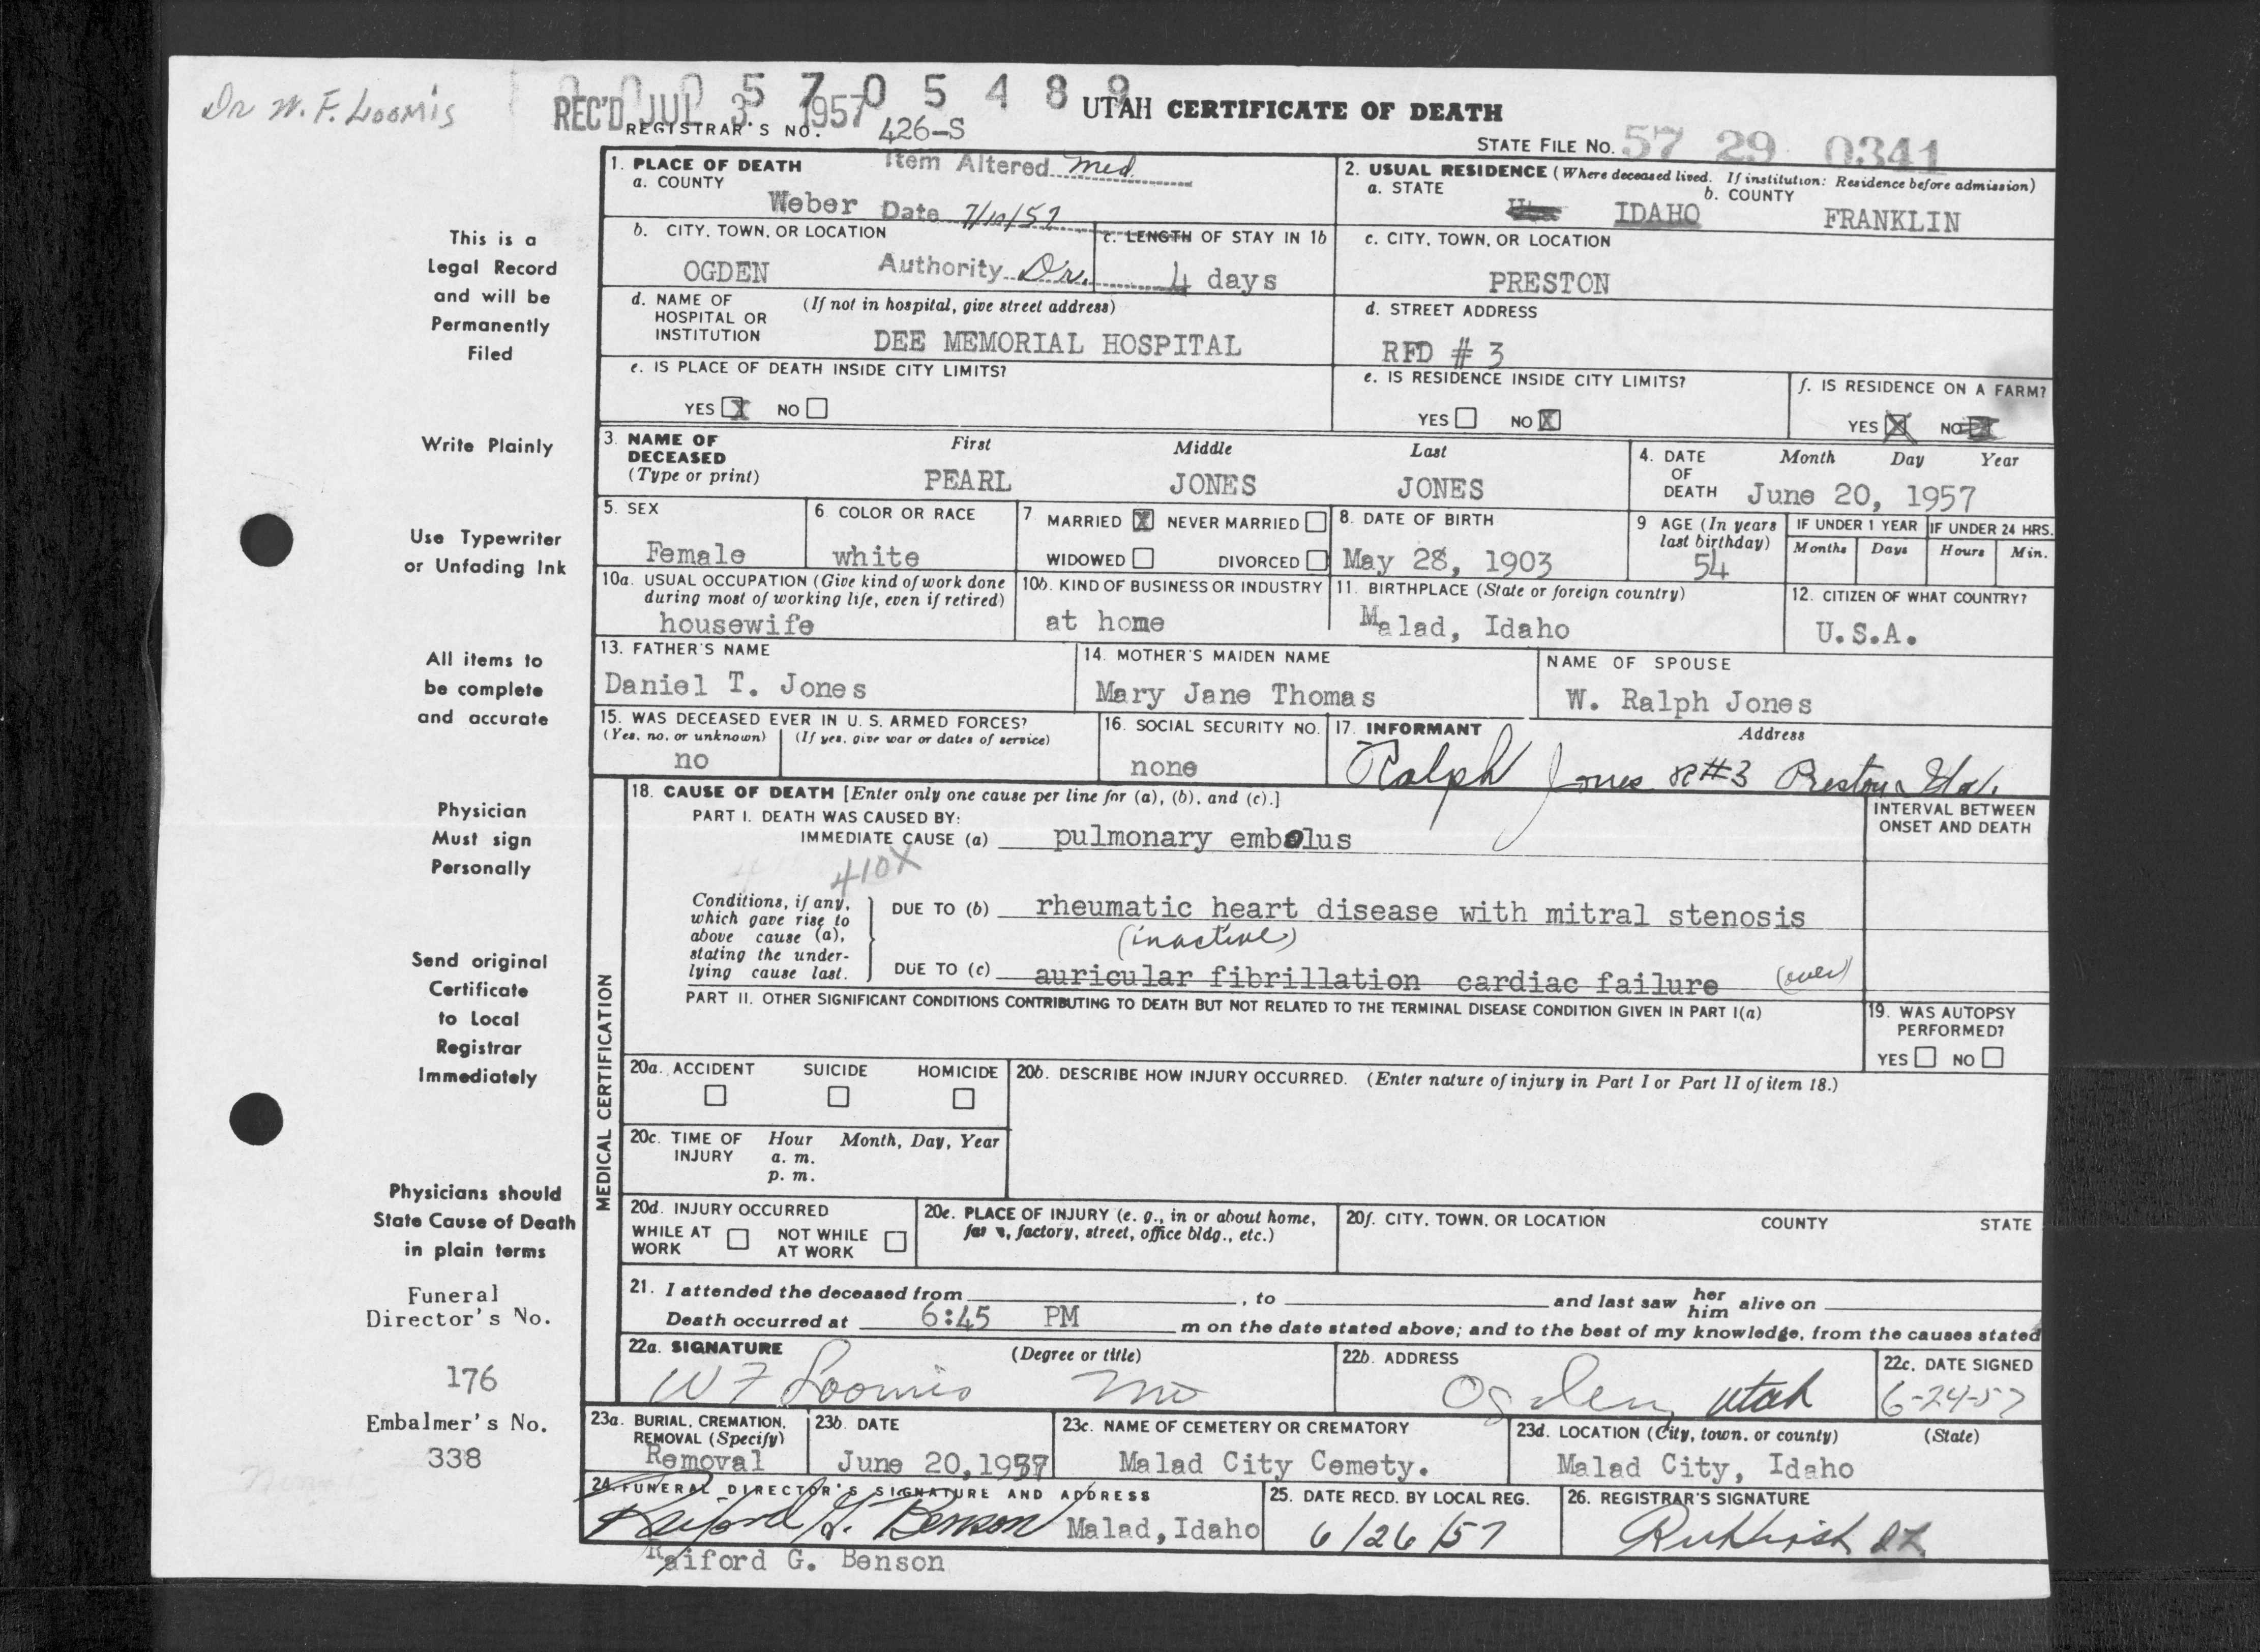 Dr W. F. Loomis
0 0 0 5 7 0 5 4 8 9
REC'D JUL 3 1957
UTAH CERTIFICATE OF DEATH
REGISTRAR'S NO. 426-S
STATE FILE NO. 57 29 0341
1. PLACE OF DEATH
Item Altered Med.
a. COUNTY
Weber
Date 7/10/57
2. USUAL RESIDENCE (Where deceased lived. If institution: Residence before admission)
a. STATE
b. COUNTY
IDAHO FRANKLIN
b. CITY, TOWN, OR LOCATION
OGDEN
Authority Dr.
c. LENGTH OF STAY IN 1b
4 days
c. CITY, TOWN, OR LOCATION
PRESTON
d. NAME OF HOSPITAL OR INSTITUTION
(If not in hospital, give street address)
DEE MEMORIAL HOSPITAL
d. STREET ADDRESS
RFD # 3
e. IS PLACE OF DEATH INSIDE CITY LIMITS?
YES X NO
e. IS RESIDENCE INSIDE CITY LIMITS?
YES NO X
f. IS RESIDENCE ON A FARM?
YES X NO
3. NAME OF DECEASED
(Type or print)
First Middle Last
PEARL JONES JONES
4. DATE OF DEATH
Month Day Year
June 20, 1957
5. SEX
Female
6 COLOR OR RACE
white
7 MARRIED X NEVER MARRIED
WIDOWED DIVORCED
8. DATE OF BIRTH
May 28, 1903
9 AGE (In years last birthday)
54
IF UNDER 1 YEAR
Months Days
IF UNDER 24 HRS.
Hours Min.
10a. USUAL OCCUPATION (Give kind of work done during most of working life, even if retired)
housewife
10b. KIND OF BUSINESS OR INDUSTRY
at home
11. BIRTHPLACE (State or foreign country)
Malad, Idaho
12. CITIZEN OF WHAT COUNTRY?
U.S.A.
13. FATHER'S NAME
Daniel T. Jones
14. MOTHER'S MAIDEN NAME
Mary Jane Thomas
NAME OF SPOUSE
W. Ralph Jones
15. WAS DECEASED EVER IN U. S. ARMED FORCES?
(Yes, no, or unknown) (If yes, give war or dates of service)
no
16. SOCIAL SECURITY NO.
none
17. INFORMANT
Address
Ralph Jones R#3 Preston Ida.
18. CAUSE OF DEATH [Enter only one cause per line for (a), (b), and (c).]
PART I. DEATH WAS CAUSED BY:
IMMEDIATE CAUSE (a) pulmonary embolus
INTERVAL BETWEEN ONSET AND DEATH
410X
Conditions, if any, which gave rise to above cause (a), stating the underlying cause last.
DUE TO (b) rheumatic heart disease with mitral stenosis
(inactive)
DUE TO (c) auricular fibrillation cardiac failure (over)
PART II. OTHER SIGNIFICANT CONDITIONS CONTRIBUTING TO DEATH BUT NOT RELATED TO THE TERMINAL DISEASE CONDITION GIVEN IN PART I(a)
19. WAS AUTOPSY PERFORMED?
YES NO
MEDICAL CERTIFICATION
20a. ACCIDENT SUICIDE HOMICIDE
20b. DESCRIBE HOW INJURY OCCURRED. (Enter nature of injury in Part I or Part II of item 18.)
20c. TIME OF INJURY
Hour Month, Day, Year
a. m.
p. m.
20d. INJURY OCCURRED
WHILE AT WORK
NOT WHILE AT WORK
20e. PLACE OF INJURY (e. g., in or about home, farm, factory, street, office bldg., etc.)
20f. CITY, TOWN, OR LOCATION COUNTY STATE
21. I attended the deceased from , to and last saw her him alive on
Death occurred at 6:45 PM m on the date stated above; and to the best of my knowledge, from the causes stated
22a. SIGNATURE (Degree or title)
W F Loomis MD
22b. ADDRESS
Ogden, Utah
22c. DATE SIGNED
6-24-57
23a. BURIAL, CREMATION, REMOVAL (Specify)
Removal
23b. DATE
June 20, 1957
23c. NAME OF CEMETERY OR CREMATORY
Malad City Cemety.
23d. LOCATION (City, town, or county) (State)
Malad City, Idaho
24 FUNERAL DIRECTOR'S SIGNATURE AND ADDRESS
Raiford G. Benson Malad, Idaho
Raiford G. Benson
25. DATE RECD. BY LOCAL REG.
6/26/57
26. REGISTRAR'S SIGNATURE
This is a
Legal Record
and will be
Permanently
Filed
Write Plainly
Use Typewriter
or Unfading Ink
All items to
be complete
and accurate
Physician
Must sign
Personally
Send original
Certificate
to Local
Registrar
Immediately
Physicians should
State Cause of Death
in plain terms
Funeral
Director's No.
176
Embalmer's No.
338